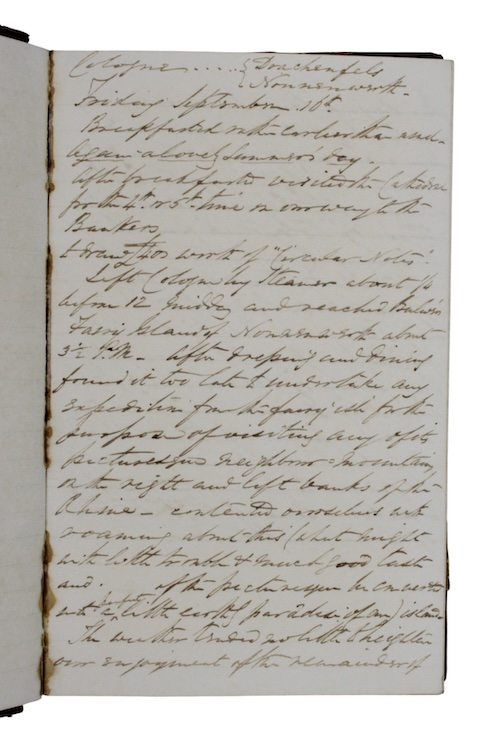 Cologne ..... { Drachenfels
Nonnenwerth -
Friday September 10th.
Breakfasted rather earlier than usual -
again a lovely summer's day -
After breakfast visited the Cathedral
for the 4th. or 5th. time on our way to the
Bankers
to draw £40s worth of "Circular Notes"
Left Cologne by Steamer about 1/4
before 12 midday and reached
Faery Island of Nonnenwerth about
3 1/2 P.M. - After dressing and dining
found it too late to undertake any
expedition from the fairy isle for the
purpose of visiting any of its
picturesque neighbour = mountains
on the right and left banks of the
Rhine - contented ourselves with
roaming about this (what might
with little trouble & much good taste
and of the picturesque be converted
into a perfect little earthly paradise of an) island -
The weather tended no little to heighten
our enjoyment of the remainder of